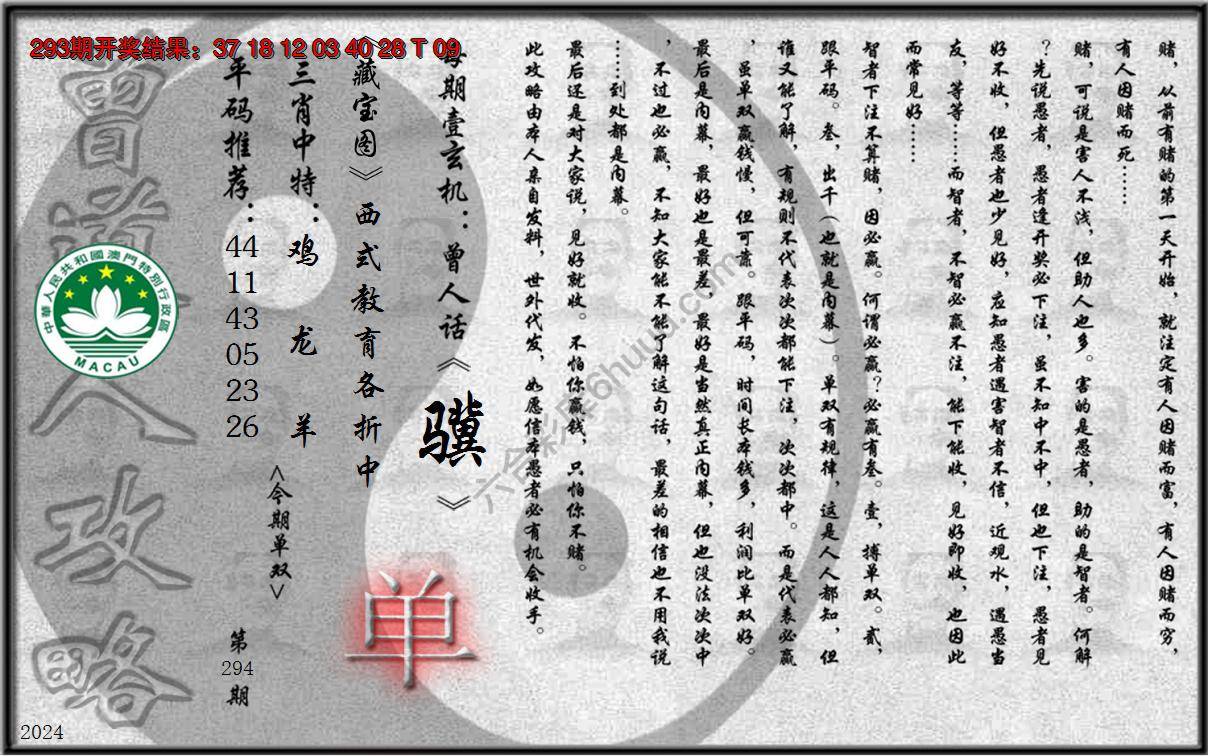 293期开奖结果：37 18 12 03 40 28 T 09
赌，从前有赌的第一天开始，就注定有人因赌而富，有人因赌而穷，
有人因赌而死……
赌，可说是害人不浅，但助人也多。害的是愚者，助的是智者。何解
？先说愚者，愚者逢开奖必下注，虽不知中不中，但也下注，愚者见
好不收，但愚者也少见好，应知愚者遇害智者不信，近观水，遇愚当
友，等等……而智者，不智必赢不注，能下能收，见好即收，也因此
而常见好……
智者下注不算赌，因必赢。何谓必赢？必赢有叁。壹，搏单双。贰，
跟平码。叁，出千（也就是内幕）。单双有规律，这是人人都知，但
谁又能了解，有规则不代表次次都能下注，次次都中。而是代表必赢
，虽单双赢钱慢，但可靠。跟平码，时间长本钱多，利润比单双好。
最后是内幕，最好也是最差，最好是当然真正内幕，但也没法次次中
，不过也必赢，不知大家能不能了解这句话，最差的相信也不用我说
……到处都是内幕。
最后还是对大家说，见好就收。不怕你赢钱，只怕你不赌。
此攻略由本人亲自发料，世外代发，如愿信本愚者必有机会收手。
每期壹玄机：曾人话《骥》
《藏宝图》西式教育各折中
三肖中特：鸡 龙 羊
平码推荐：44 11 43 05 23 26
<今期单双>
单
第294期
曾道人攻略
中華人民共和國澳門特別行政區
MACAU
六合彩库6huuu.com
2024